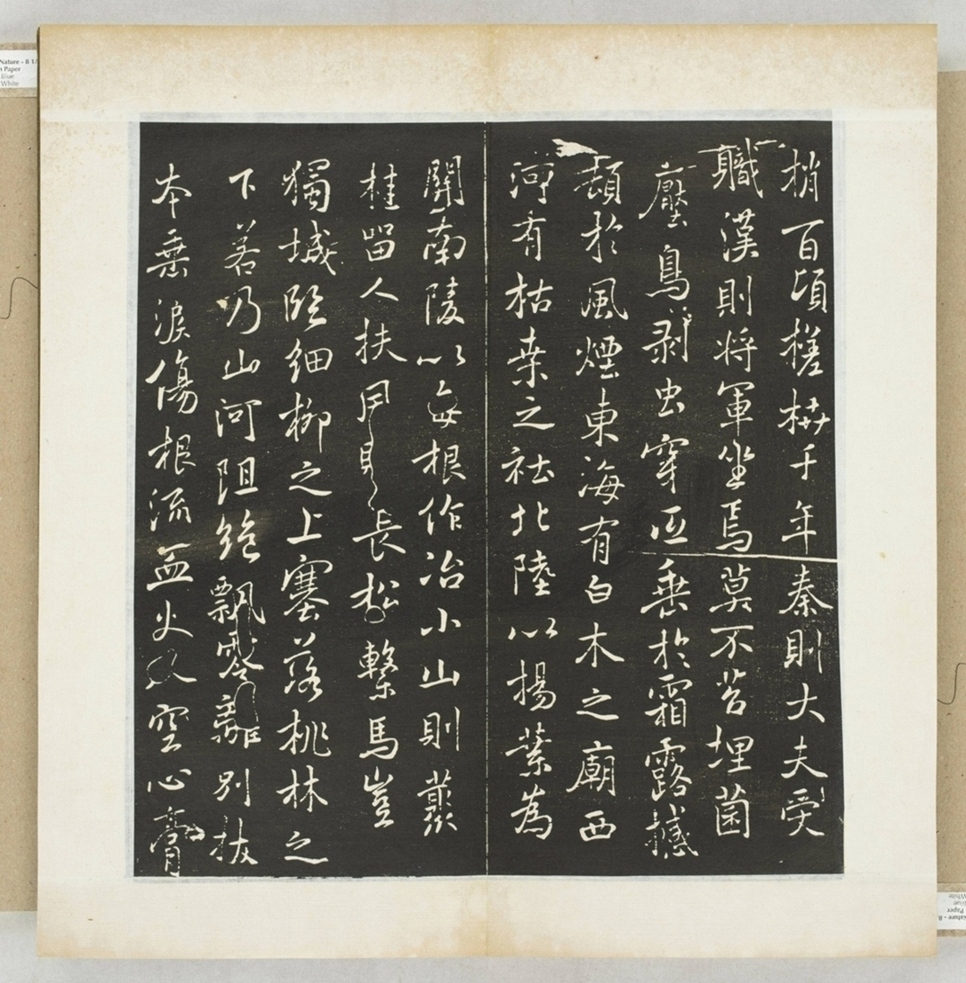 梢百頃槎枿千年秦則大夫受
職漢則將軍坐焉莫不苔埋菌
壓鳥剥虫穿低垂於霜露撼
頓於風煙東海有白木之廟西
河有枯桑之社北陸以楊葉為
關南陵以每根作冶小山則藂
桂留人扶風則長松繫馬豈
獨城臨細柳之上塞落桃林之
下若乃山河阻絶飄零離別拔
本垂淚傷根流血火入空心膏
Nature - 8 1/
Paper
Blue
White